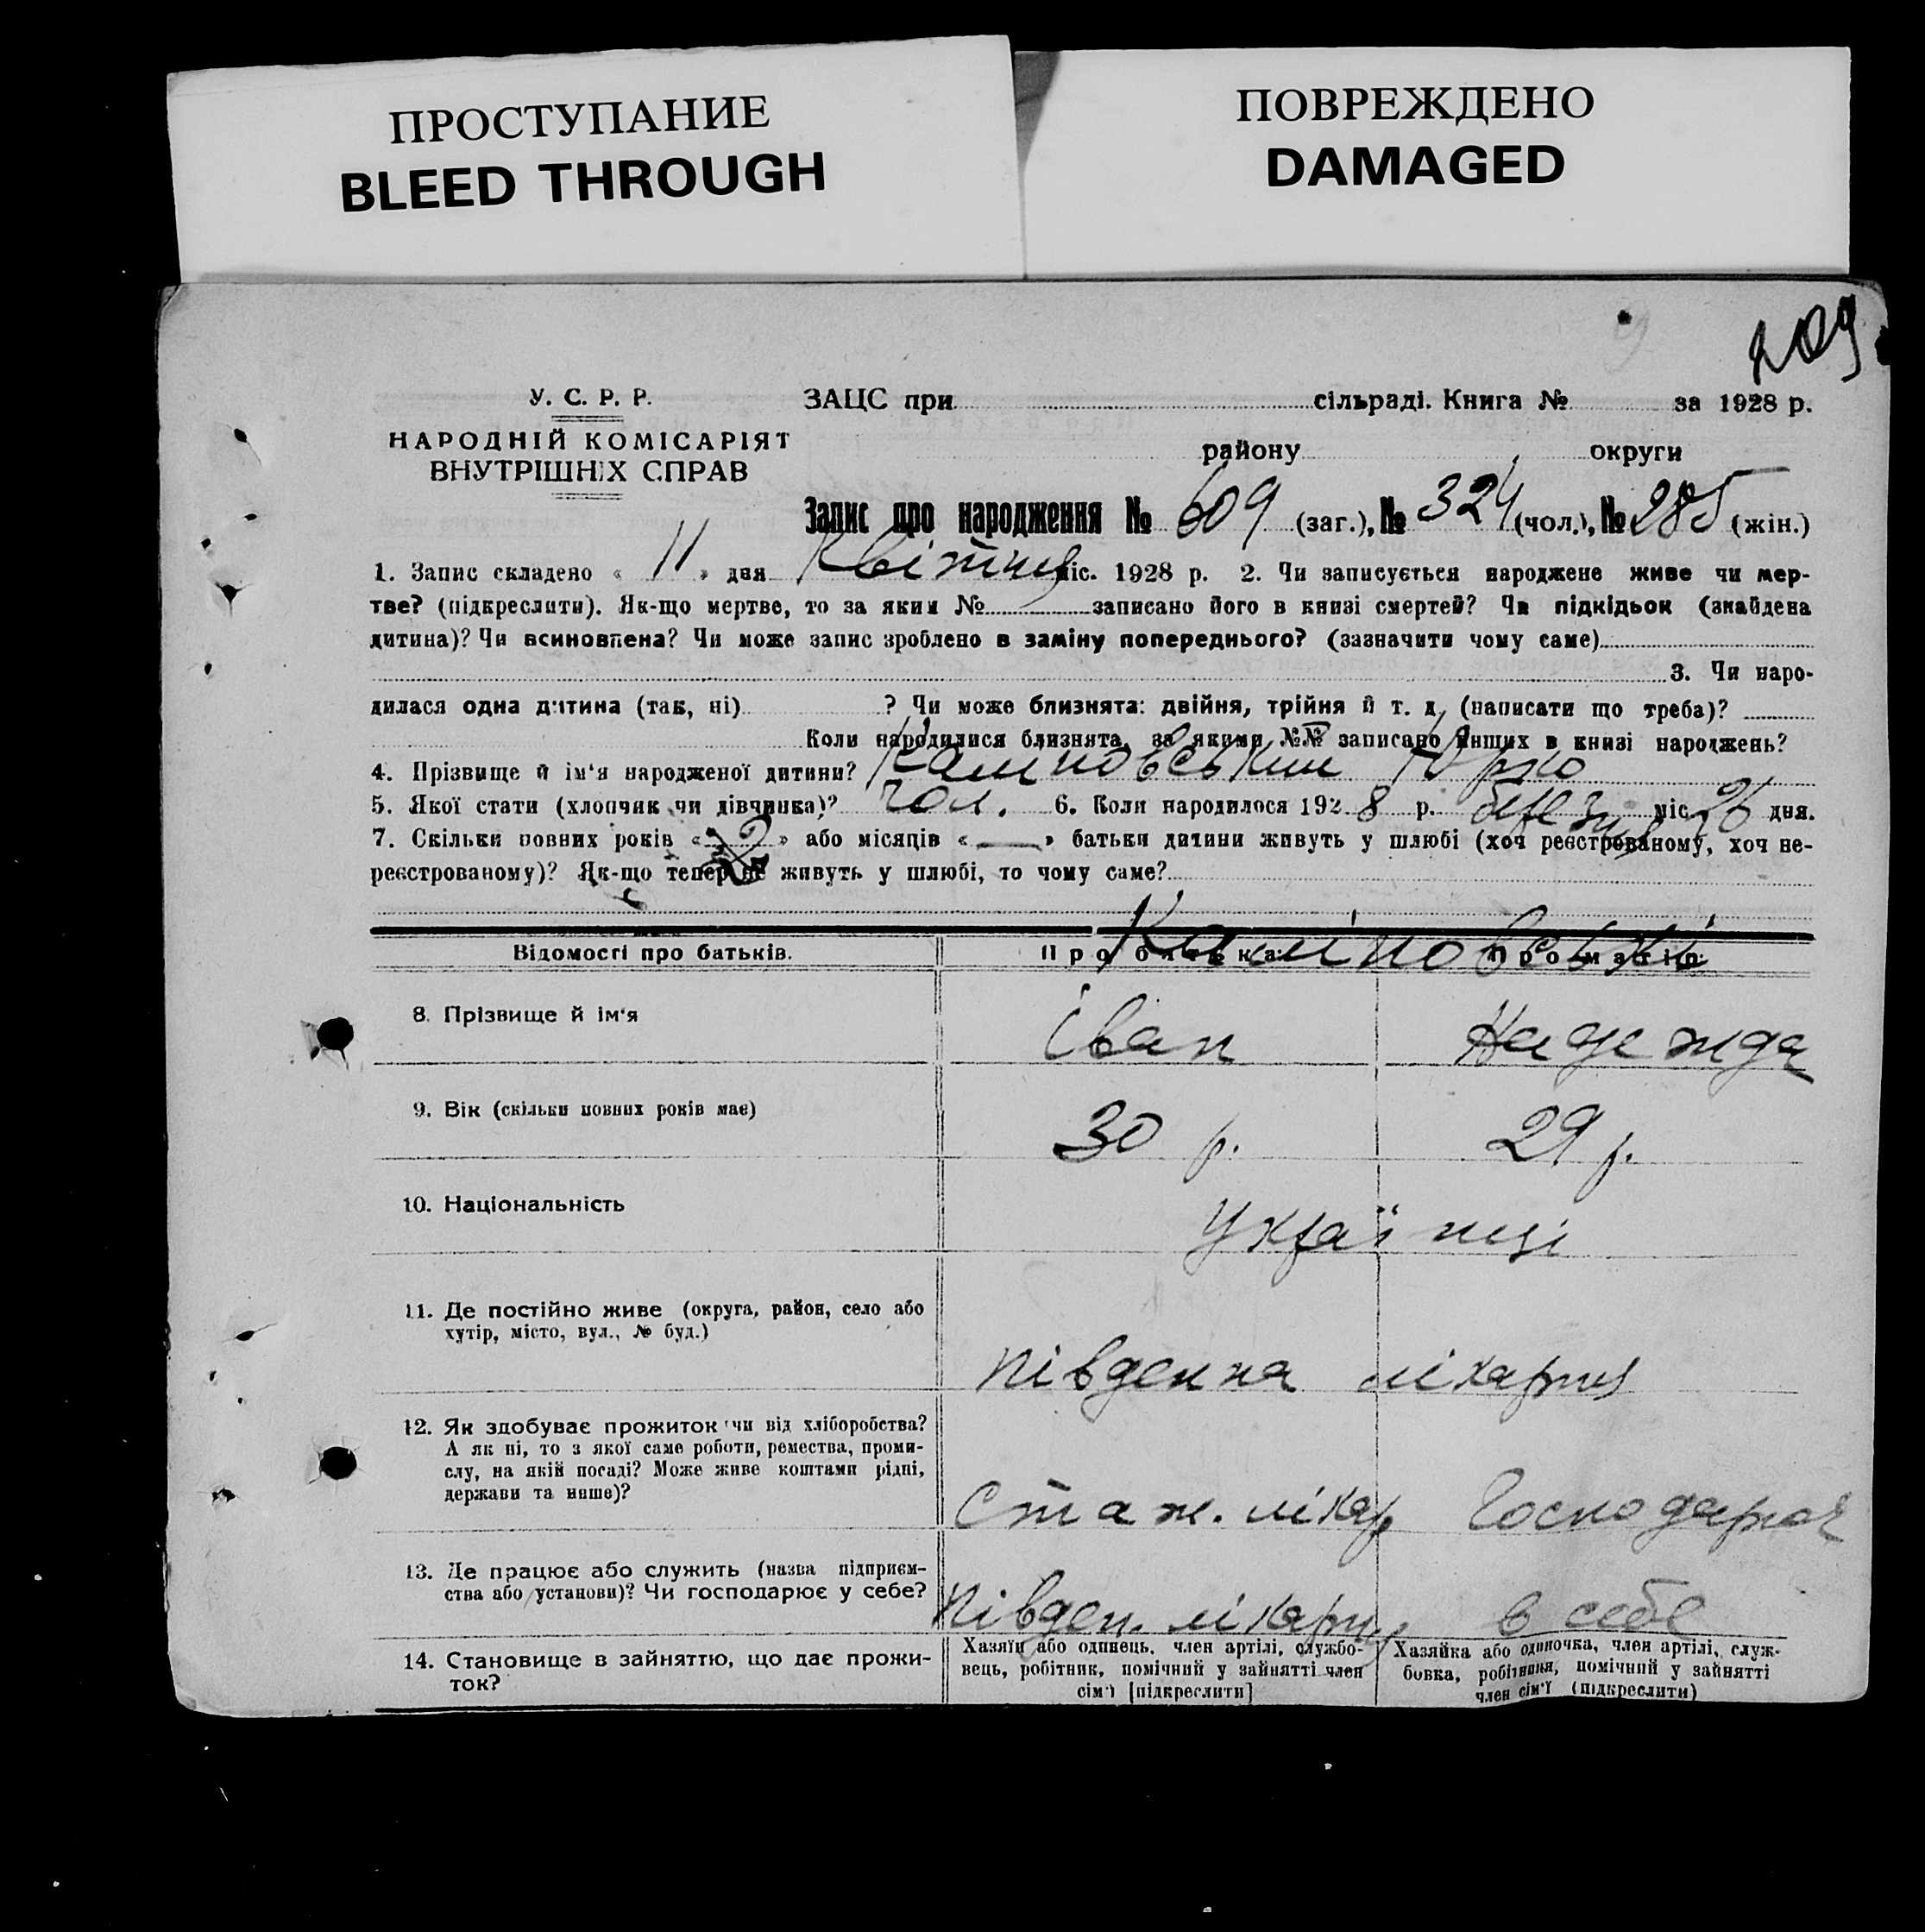 ПРОСТУПАНИЕ
BLEED THROUGH
ПОВРЕЖДЕНО
DAMAGED
209
У. С. Р. Р.
НАРОДНІЙ КОМІСАРІЯТ
ВНУТРІШНІХ СПРАВ
ЗАЦС при сільраді. Книга № за 1928 р.
району округи
Запис про народження № 609 (заг.), № 324 (чол.), № 285 (жін.)
1. Запис складено « 11 » дня квітня міс. 1928 р. 2. Чи записується народжене живе чи мер-
тве? (підкреслити). Як-що мертве, то за яким № записано його в книзі смертей? Чи підкідьок (знайдена
дитина)? Чи всиновлена? Чи може запис зроблено в заміну попереднього? (зазначити чому саме)
3. Чи наро-
дилася одна дитина (так, ні) ? Чи може близнята: двійня, трійня й т. д. (написати що треба)?
Коли народилися близнята, за якими №№ записано інших в книзі народжень?
4. Прізвище й ім'я народженої дитини? Каліновський Юрко
5. Якої стати (хлопчик чи дівчинка)? чол. 6. Коли народилося 1928 р. березня міс. 26 дня.
7. Скільки повних років « 2 » або місяців « — » батьки дитини живуть у шлюбі (хоч реєстрованому, хоч не-
реєстрованому)? Як-що тепер не живуть у шлюбі, то чому саме?
Відомості про батьків. Про батька Про матір
Каліновські
8. Прізвище й ім'я Іван Надежда
9. Вік (скільки повних років має) 30 р. 29 р.
10. Національність Українці
11. Де постійно живе (округа, район, село або
хутір, місто, вул., № буд.)
Південна лікарня
12. Як здобуває прожиток чи від хліборобства?
А як ні, то з якої саме роботи, ремества, проми-
слу, на якій посаді? Може живе коштами рідні,
держави та инше)?
Стаж. лікар Господарює
13. Де працює або служить (назва підприєм-
ства або установи)? Чи господарює у себе?
Півден. лікарня в себе
14. Становище в зайняттю, що дає прожи-
ток?
Хазяїн або одинець, член артілі, службо-
вець, робітник, помічний у зайнятті член
сім'ї [підкреслити]
Хазяйка або одиночка, член артілі, служ-
бовка, робітниця, помічний у зайнятті
член сім'ї (підкреслити)